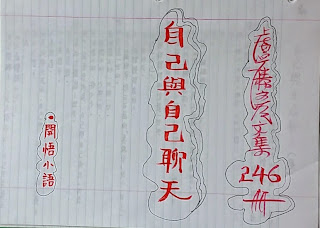 盧勝彥文集
246
冊
自己與自己聊天
•開悟小語